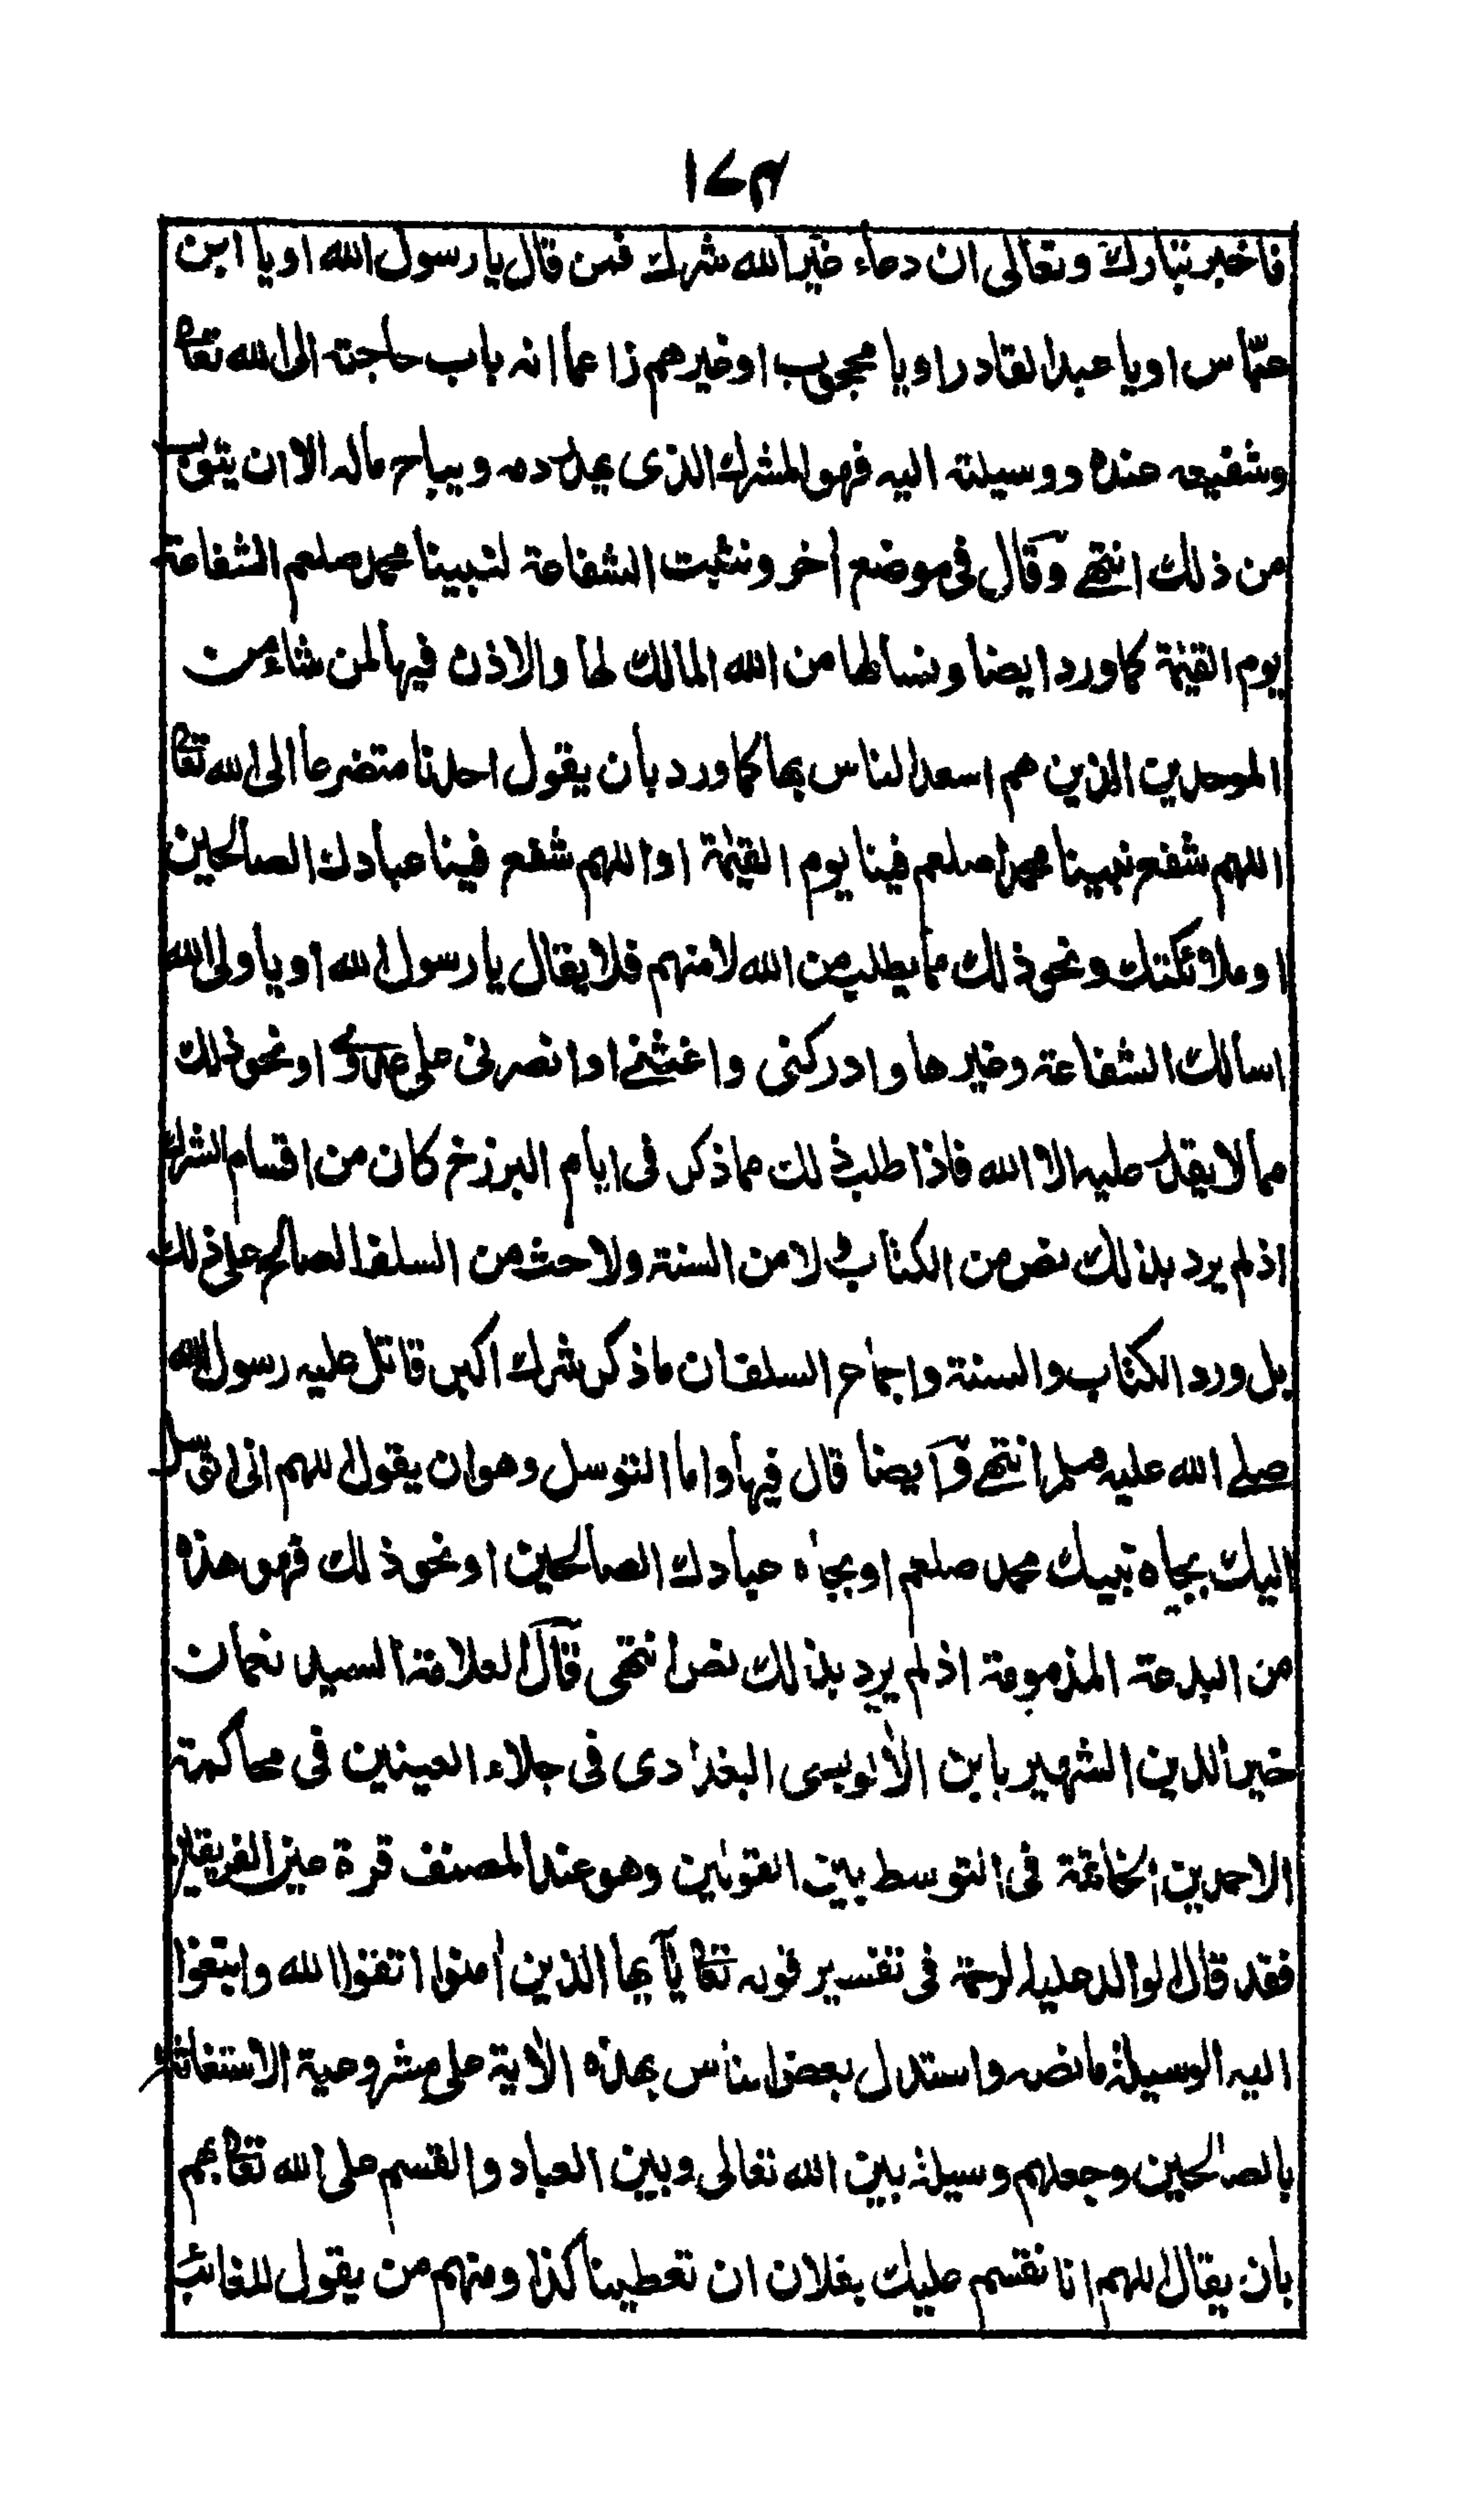 ١٧٣
فاخبر تبارك وتعالى ان دعاء غير الله شرك فمن قال يا رسول الله او يا ابن
عباس او يا عبد القادر او يا محجوب او غيرهم زاعما انه باب حاجته الى الله تعا
وشفيعه عنده ووسيلته اليه فهو المشرك الذى يهدر دمه ويباح ماله الا ان يتوب
من ذلك انتهى وقال فى موضع آخر ونثبت الشفاعة لنبينا محمد صلعم الشفاعة
يوم القيمة كما ورد ايضا ونسالها من الله المالك لها والاذن فيها لمن شاء من
الموحدين الذين هم اسعد الناس بها كما ورد بان يقول احدنا متضرعا الى الله تعا
اللهم شفع نبينا محمدا صلعم فينا يوم القيمة او اللهم شفع فينا عبادك الصالحين
او ملائكتك ونحو ذلك مما يطلب من الله لا منهم فلا يقال يا رسول الله او يا ولى الله
اسالك الشفاعة وغيرها وادركنى واغثنى او انصرنى على عدوى او نحو ذلك
مما لا يقدر عليه الا الله فاذا طلب ذلك مما ذكر فى ايام البرزخ كان من اقسام الشرك
اذ لم يرد بذلك نص من الكتاب ولا من السنة ولا حث من السلف الصالح على ذلك
بل ورد الكتاب والسنة واجماع السلف ان ما ذكر شرك اكبر قاتل عليه رسول الله
صلى الله عليه وسلم انتهى وايضا قال فيها واما التوسل وهو ان يقول اللهم انى اتوسل
اليك بجاه نبيك محمد صلعم او بجاه عبادك الصالحين او نحو ذلك فهو هذه
من البدعة المذمومة اذ لم يرد بذلك نص انتهى قال العلامة السيد نعمان
خير الدين الشهير بابن الألوسى البغدادى فى جلاء العينين فى محاكمة
الاحمدين الخاتمة فى التوسط بين القولين وهو عند المصنف قرة عين الفريقين
فقد قال الوالد عليه الرحمة فى تفسير قوله تعا يآ يها الذين أمنوا اتقوا الله وابتغوا
اليه الوسيلة ما نصه واستدل بعض الناس بهذه الأية على مشروعية الاستغاثة
بالصالحين وجعلهم وسيلة بين الله تعالى وبين العباد والقسم على الله تعا بهم
بان يقال اللهم انا نقسم عليك بفلان ان تعطينا كذا ومنهم من يقول للغائب